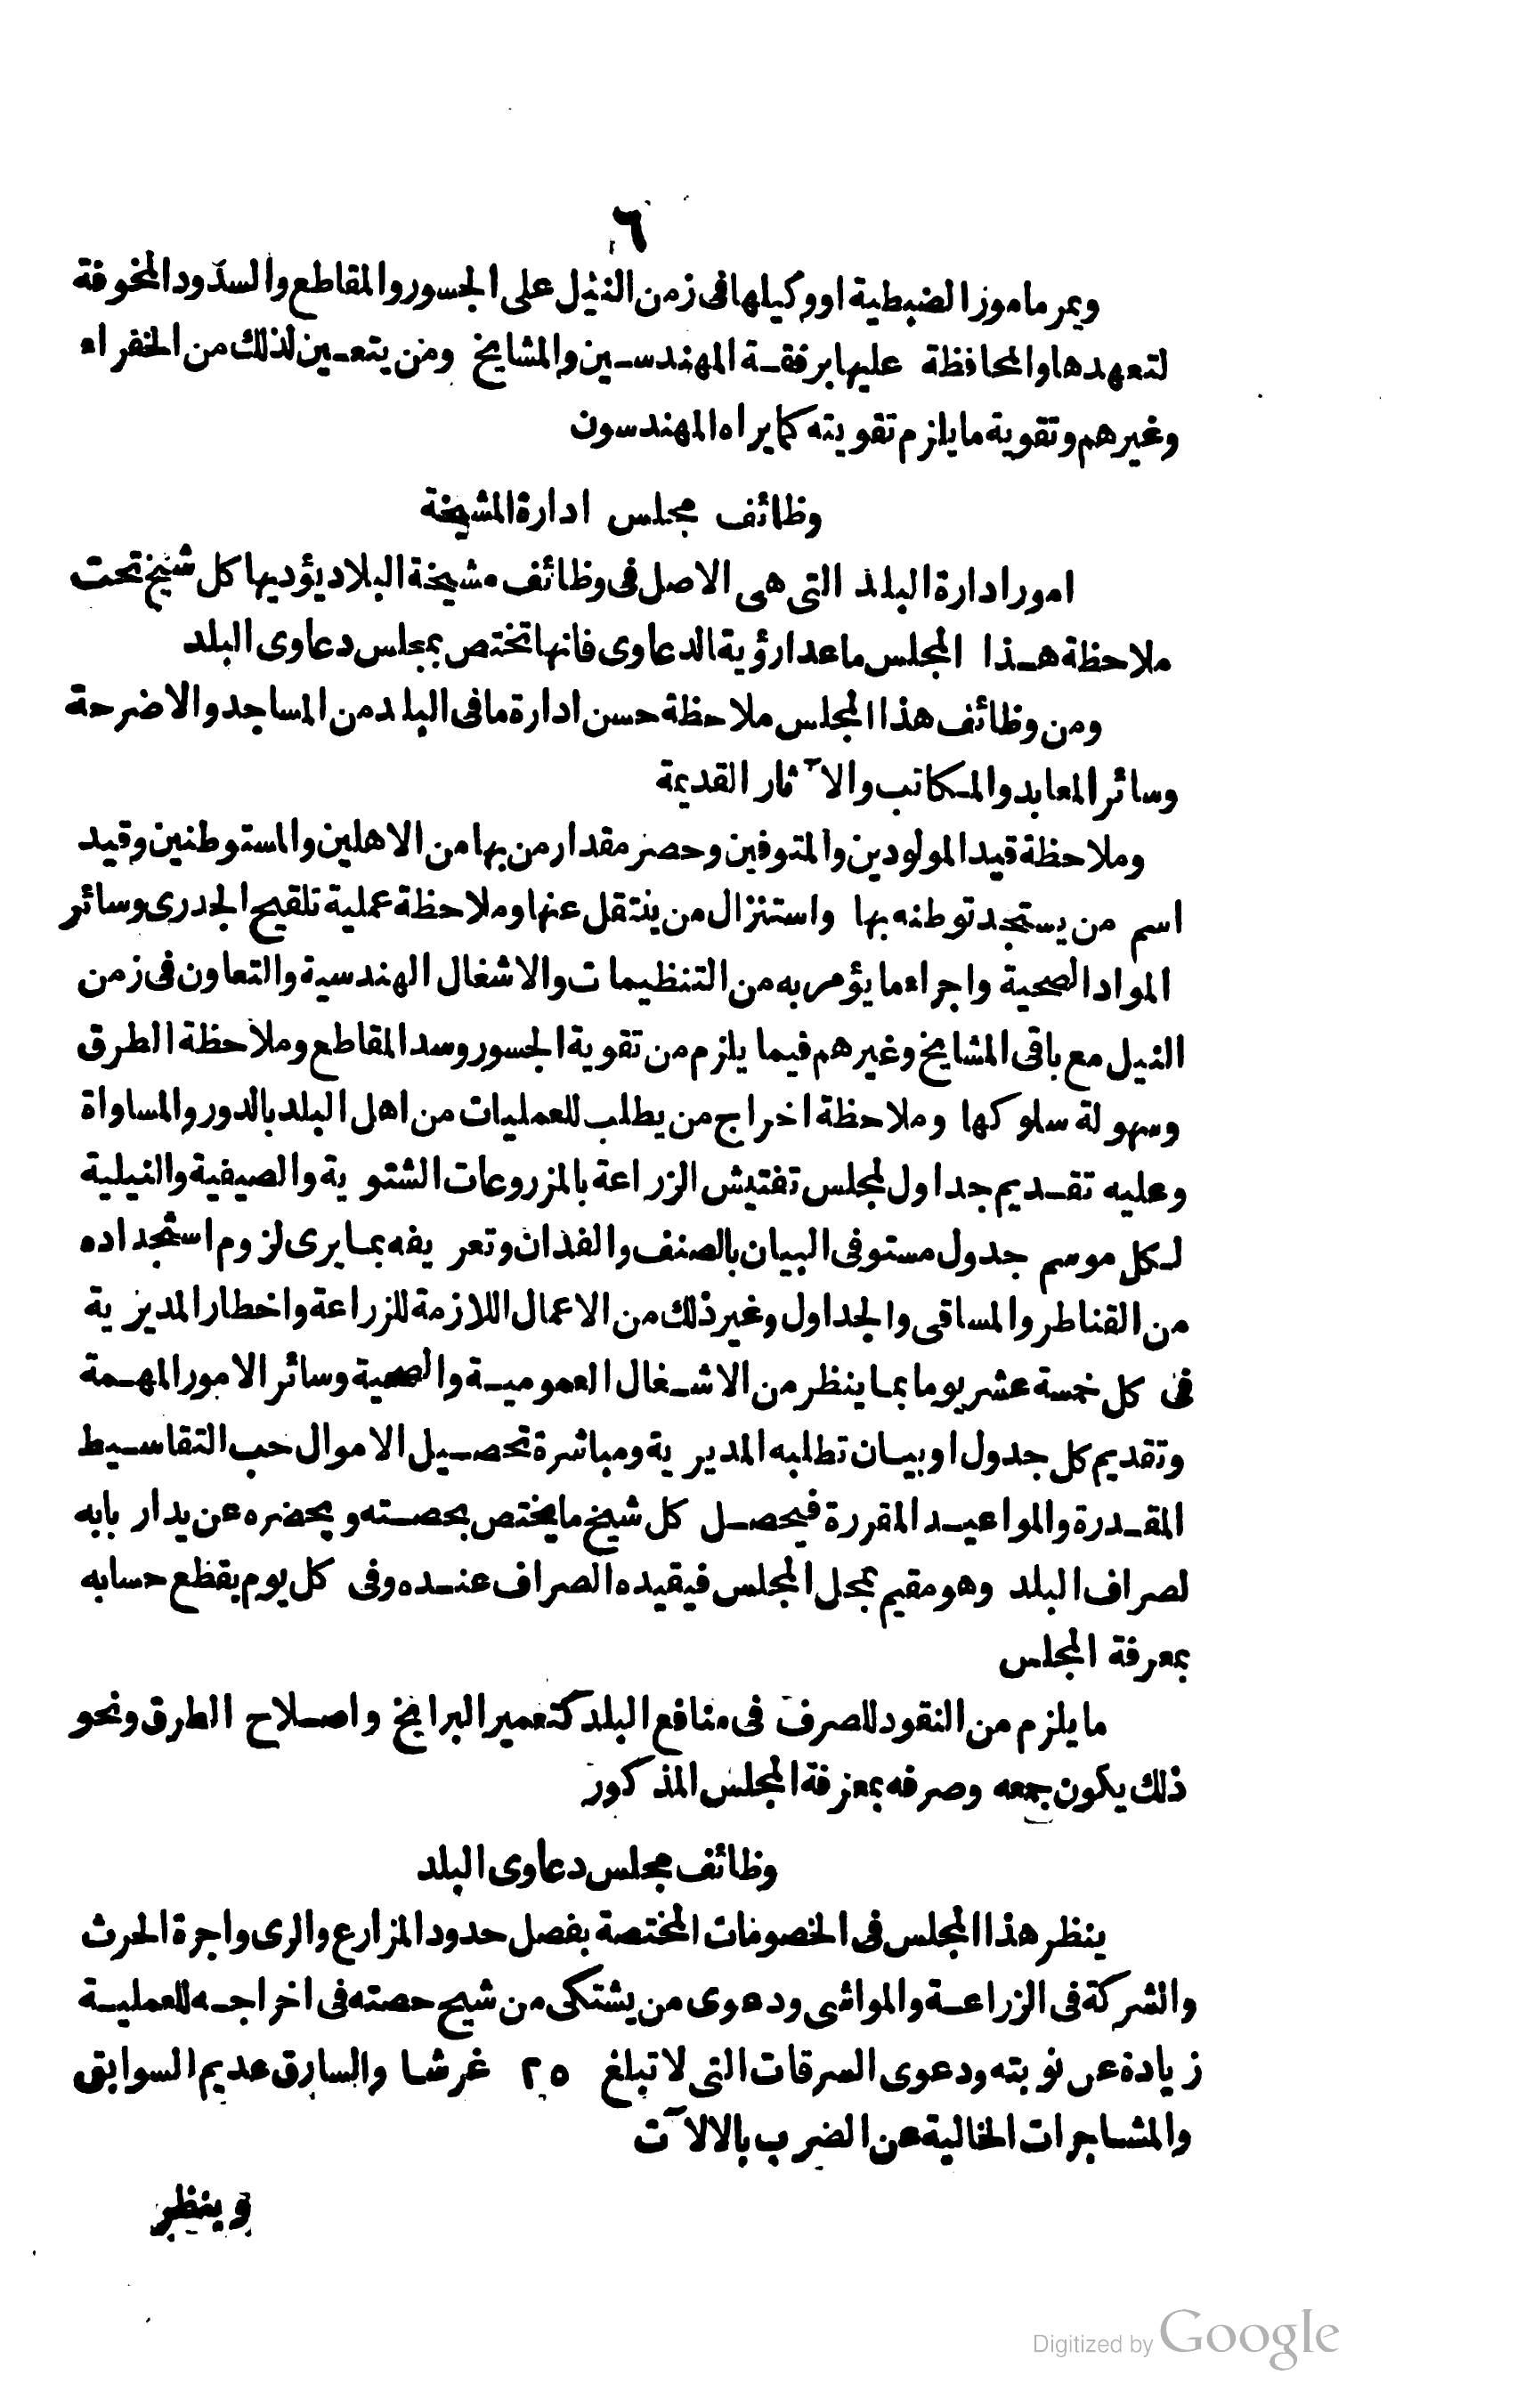 ٦
ويمر مامور الضبطية او وكيلها فى زمن النيل على الجسور والمقاطع والسدود المخوفة
لتعهدها والمحافظة عليها برفقة المهندسين والمشايخ ومن يتعين لذلك من الخفراء
وغيرهم وتقوية ما يلزم تقويته كما يراه المهندسون
وظائف مجلس ادارة المشيخة
امور ادارة البلد التى هى الاصل فى وظائف مشيخة البلاد يؤديها كل شيخ تحت
ملاحظة هذا المجلس ما عدا رؤية الدعاوى فانها تختص بمجلس دعاوى البلد
ومن وظائف هذا المجلس ملاحظة حسن ادارة ما فى البلد من المساجد والاضرحة
وسائر المعابد والمكاتب والآثار القديمة
وملاحظة قيد المولودين والمتوفين وحصر مقدار من بها من الاهلين والمستوطنين وقيد
اسم من يستجد توطنه بها واستنزال من ينتقل عنها وملاحظة عملية تلقيح الجدرى وسائر
المواد الصحية واجراء ما يؤمر به من التنظيمات والاشغال الهندسية والتعاون فى زمن
النيل مع باقى المشايخ وغيرهم فيما يلزم من تقوية الجسور وسد المقاطع وملاحظة الطرق
وسهولة سلوكها وملاحظة اخراج من يطلب للعمليات من اهل البلد بالدور والمساواة
وعليه تقديم جداول لمجلس تفتيش الزراعة بالمزروعات الشتوية والصيفية والنيلية
لكل موسم جدول مستوفى البيان بالصنف والفدان وتعريفه بما يرى لزوم استجداده
من القناطر والمساقى والجداول وغير ذلك من الاعمال اللازمة للزراعة واخطار المديرية
فى كل خمسة عشر يوما بما ينظر من الاشغال العمومية والصحية وسائر الامور المهمة
وتقديم كل جدول او بيان تطلبه المديرية ومباشرة تحصيل الاموال حب التقاسيط
المقدرة والمواعيد المقررة فيحصل كل شيخ ما يختص بحصته ويحضره عن يد اربابه
لصراف البلد وهو مقيم بمحل المجلس فيقيده الصراف عنده وفى كل يوم يقطع حسابه
بمعرفة المجلس
ما يلزم من النقود للصرف فى منافع البلد كتعمير البرابخ واصلاح الطرق ونحو
ذلك يكون جمعه وصرفه بمعرفة المجلس المذكور
وظائف مجلس دعاوى البلد
ينظر هذا المجلس فى الخصومات المختصة بفصل حدود المزارع والرى واجرة الحرث
والشركة فى الزراعة والمواشى ودعوى من يشتكى من شيخ حصته فى اخراجه للعملية
زيادة عن نوبته ودعوى السرقات التى لا تبلغ ٢٥ غرشا والسارق عديم السوابق
والمشاجرات الخالية عن الضرب بالالآت
وينظر
Digitized by Google